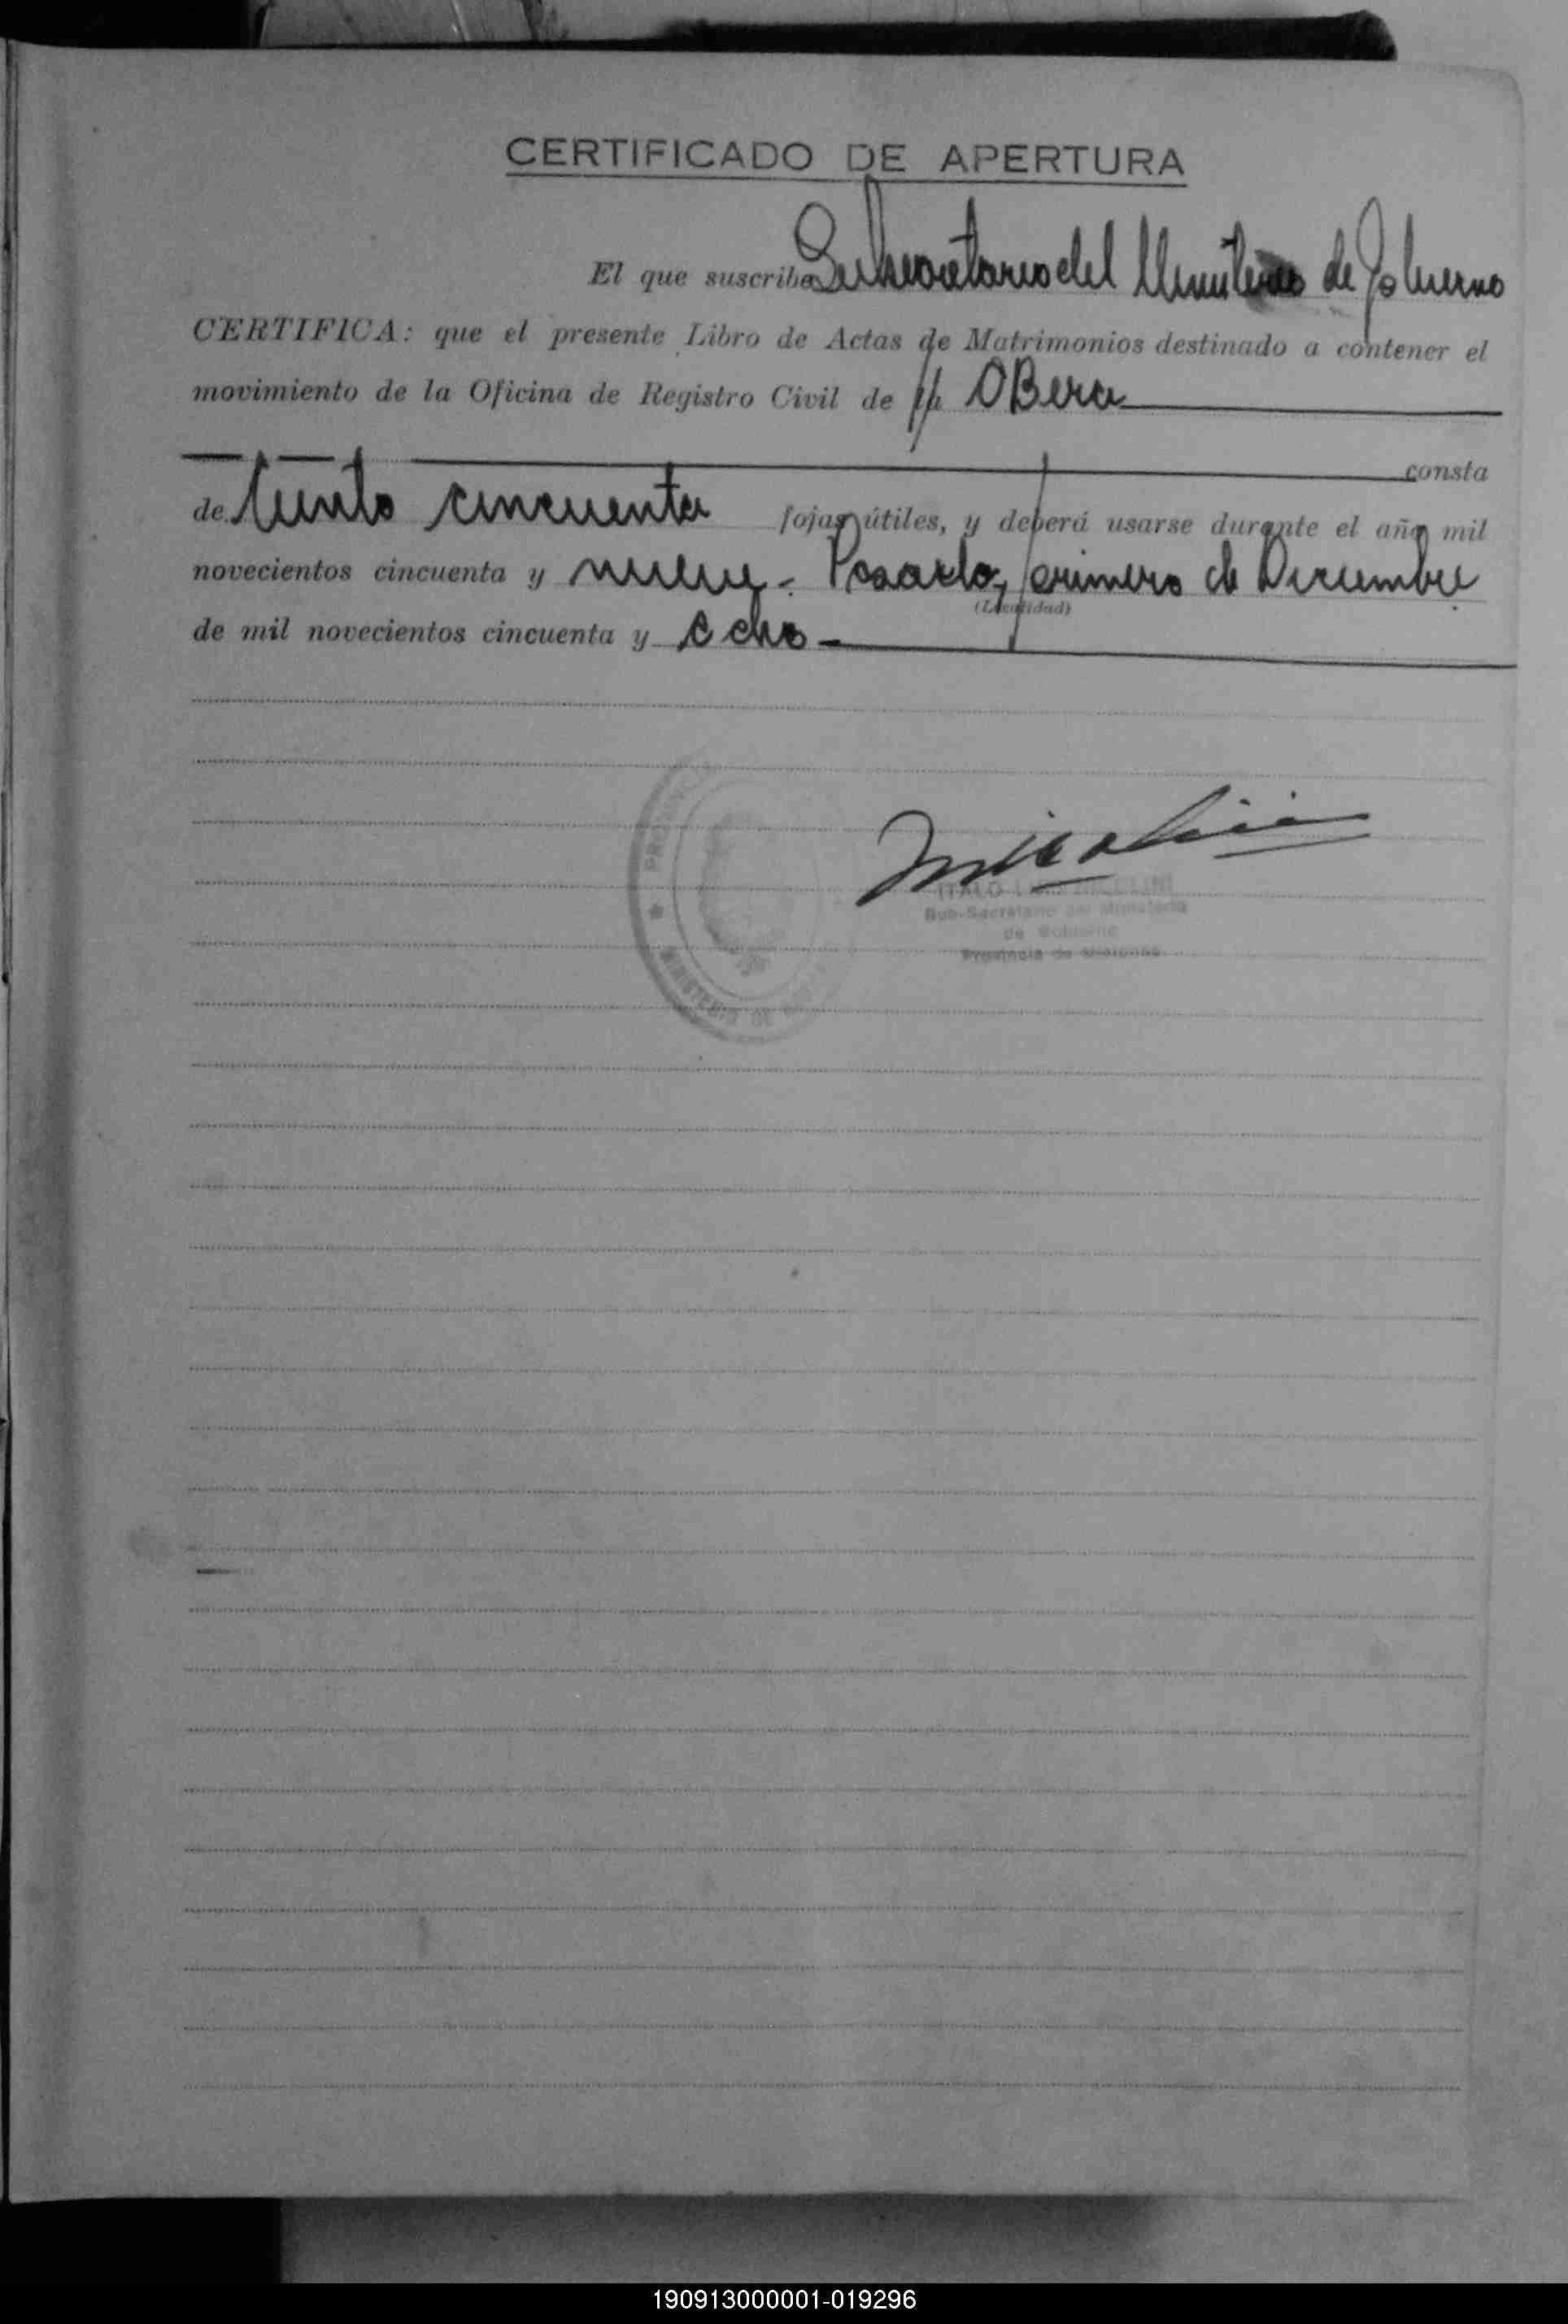 CERTIFICADO DE APERTURA
El que suscribe Subsecretario del Ministerio de Gobierno
CERTIFICA: que el presente Libro de Actas de Matrimonios destinado a contener el
movimiento de la Oficina de Registro Civil de OBera
consta
de Ciento cincuenta fojas útiles, y deberá usarse durante el año mil
novecientos cincuenta y nueve. Posadas, primero de Diciembre
(Localidad)
de mil novecientos cincuenta y ocho
ITALO NICOLINI
Sub-Secretario del Ministerio
de Gobierno
Provincia de Misiones
MINISTERIO DE
190913000001-019296